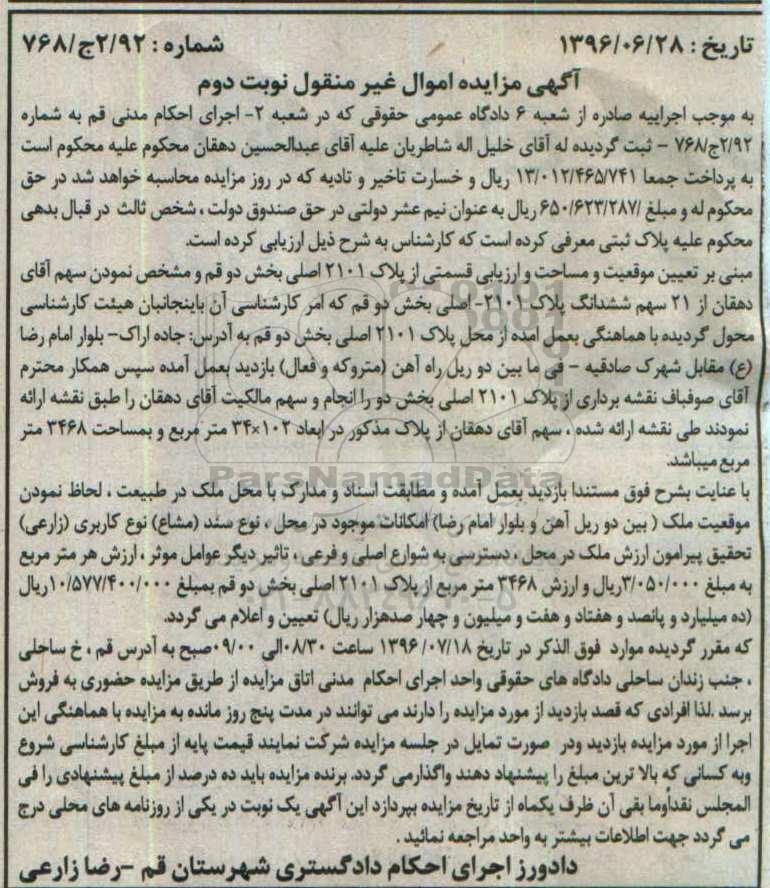 تاریخ : ۱۳۹۶/۰۶/۲۸
شماره : ۲/۹۲ج/۷۶۸
آگهی مزایده اموال غیر منقول نوبت دوم
به موجب اجراییه صادره از شعبه ۶ دادگاه عمومی حقوقی که در شعبه ۲- اجرای احکام مدنی قم به شماره
۲/۹۲ج/۷۶۸ - ثبت گردیده له آقای خلیل اله شاطریان علیه آقای عبدالحسین دهقان محکوم علیه محکوم است
به پرداخت جمعا ۱۳/۰۱۲/۴۶۵/۷۴۱ ریال و خسارت تاخیر و تادیه که در روز مزایده محاسبه خواهد شد در حق
محکوم له و مبلغ /۶۵۰/۶۲۳/۲۸۷ ریال به عنوان نیم عشر دولتی در حق صندوق دولت ، شخص ثالث در قبال بدهی
محکوم علیه پلاک ثبتی معرفی کرده است که کارشناس به شرح ذیل ارزیابی کرده است.
مبنی بر تعیین موقعیت و مساحت و ارزیابی قسمتی از پلاک ۲۱۰۱ اصلی بخش دو قم و مشخص نمودن سهم آقای
دهقان از ۲۱ سهم ششدانگ پلاک ۲۱۰۱- اصلی بخش دو قم که امر کارشناسی آن باینجانبان هیئت کارشناسی
محول گردیده با هماهنگی بعمل آمده از محل پلاک ۲۱۰۱ اصلی بخش دو قم به آدرس: جاده اراک- بلوار امام رضا
(ع) مقابل شهرک صادقیه - فی ما بین دو ریل راه آهن (متروکه و فعال) بازدید بعمل آمده سپس همکار محترم
آقای صوفباف نقشه برداری از پلاک ۲۱۰۱ اصلی بخش دو را انجام و سهم مالکیت آقای دهقان را طبق نقشه ارائه
نمودند طی نقشه ارائه شده ، سهم آقای دهقان از پلاک مذکور در ابعاد ۱۰۲×۳۴ متر مربع و بمساحت ۳۴۶۸ متر
مربع میباشد.
با عنایت بشرح فوق مستندا بازدید بعمل آمده و مطابقت اسناد و مدارک با محل ملک در طبیعت ، لحاظ نمودن
موقعیت ملک ( بین دو ریل آهن و بلوار امام رضا) امکانات موجود در محل ، نوع سند (مشاع) نوع کاربری (زارعی)
تحقیق پیرامون ارزش ملک در محل ، دسترسی به شوارع اصلی و فرعی ، تاثیر دیگر عوامل موثر ، ارزش هر متر مربع
به مبلغ ۳/۰۵۰/۰۰۰ریال و ارزش ۳۴۶۸ متر مربع از پلاک ۲۱۰۱ اصلی بخش دو قم بمبلغ ۱۰/۵۷۷/۴۰۰/۰۰۰ریال
(ده میلیارد و پانصد و هفتاد و هفت و میلیون و چهار صدهزار ریال) تعیین و اعلام می گردد.
که مقرر گردیده موارد فوق الذکر در تاریخ ۱۳۹۶/۰۷/۱۸ ساعت ۰۸/۳۰الی ۰۹/۰۰صبح به آدرس قم ، خ ساحلی
، جنب زندان ساحلی دادگاه های حقوقی واحد اجرای احکام مدنی اتاق مزایده از طریق مزایده حضوری به فروش
برسد .لذا افرادی که قصد بازدید از مورد مزایده را دارند می توانند در مدت پنج روز مانده به مزایده با هماهنگی این
اجرا از مورد مزایده بازدید ودر صورت تمایل در جلسه مزایده شرکت نمایند قیمت پایه از مبلغ کارشناسی شروع
وبه کسانی که بالا ترین مبلغ را پیشنهاد دهند واگذارمی گردد. برنده مزایده باید ده درصد از مبلغ پیشنهادی را فی
المجلس نقدأوما بقی آن ظرف یکماه از تاریخ مزایده بپردازد این آگهی یک نوبت در یکی از روزنامه های محلی درج
می گردد جهت اطلاعات بیشتر به واحد مراجعه نمائید .
دادورز اجرای احکام دادگستری شهرستان قم -رضا زارعی
ParsNamadData